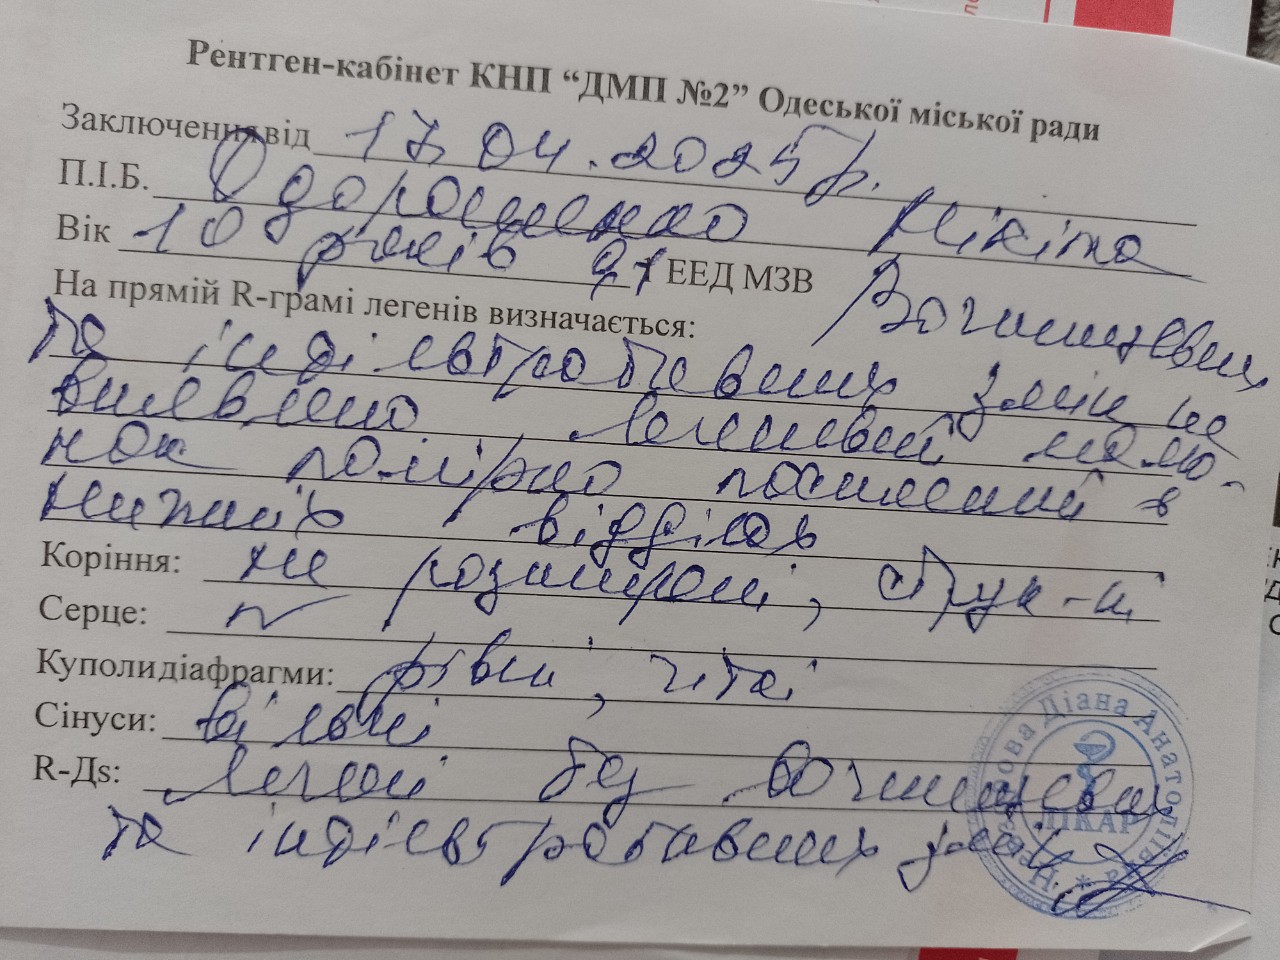 Рентген-кабінет КНП “ДМП №2” Одеської міської ради
Заключення від 17.04.2025р.
П.І.Б. Одорошенко Нікіта
Вік 10 років 0,1 ЕЕД МЗВ
На прямій R-грамі легенів визначається: Вогнищевих
та інфільтративних змін не
виявлено, легеневий малю-
нок помірно посилений в
нижніх відділах
Коріння: не розширені, структ-ні
Серце: N
Куполи діафрагми: рівні, чіткі
Сінуси: вільні
R-Дs: Легені без вогнищевих
та інфільтративних змін
Діана Анатоліївна
ЛІКАР